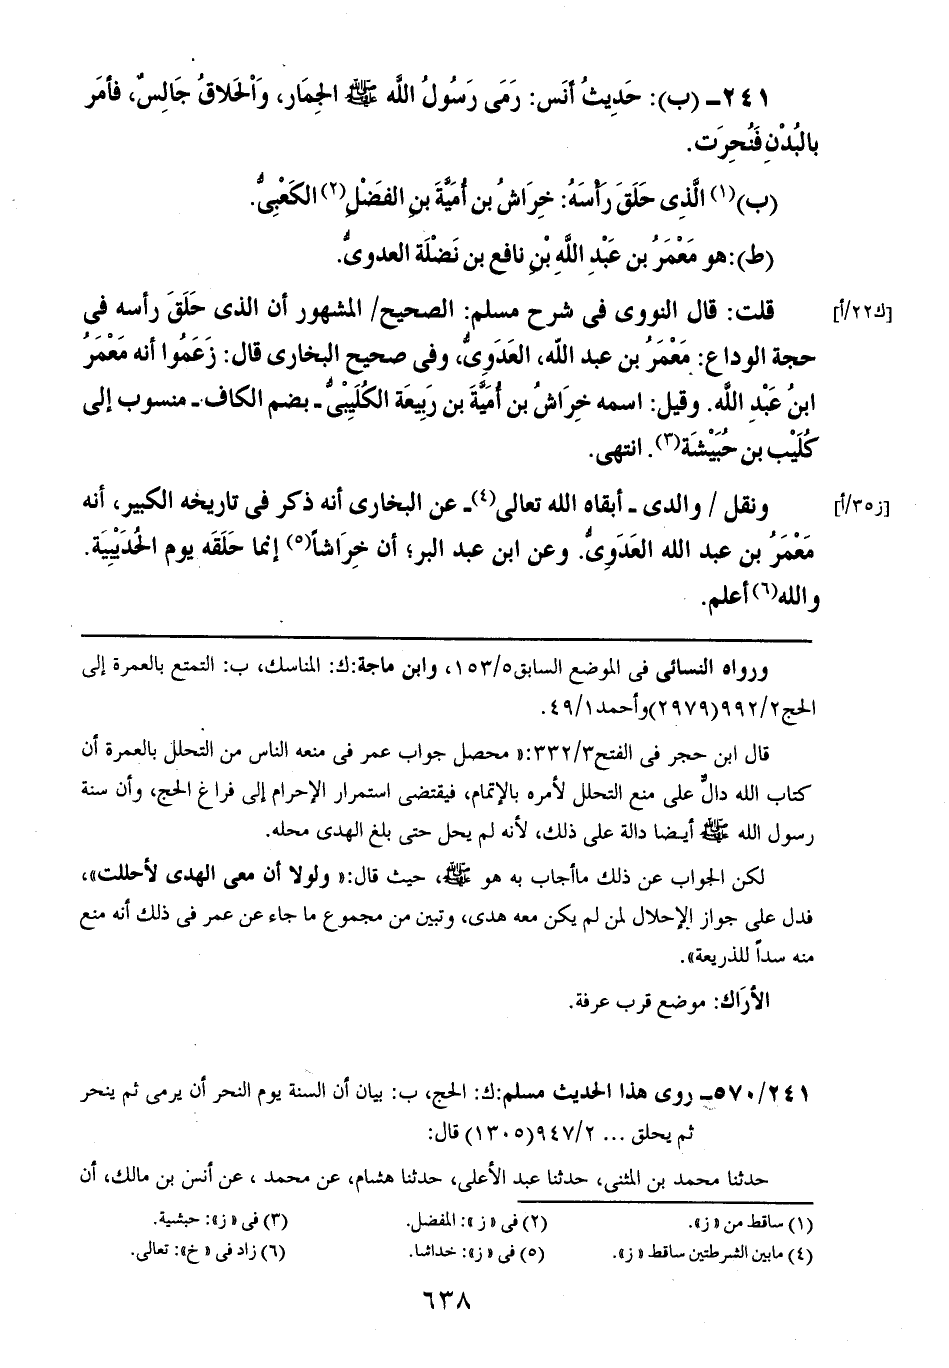 ٢٤١ـ (ب): حَدِيثُ أَنَس: رَمَى رَسُولُ اللَّه ﷺ الجِمَار، وَاْلحَلاقُ جَالِسٌ، فأمَر
بالبُدْنِ فَنُحِرَت.
(ب)(١) الَّذِى حَلَقَ رَأْسَهُ: خِرَاشُ بن أُمَيَّةَ بنِ الفَضْلِ(٢) الكَعْبِىُّ.
(ط):هو مَعْمَرُ بن عَبْدِ اللَّهِ بْنِ نافع بن نَضْلَة العدوىُّ.
[ك٢٢/أ] قلت: قال النووى فى شرح مسلم: الصحيح/ المشهور أن الذى حَلَقَ رأسه فى
حجة الوداع: مَعْمَرُ بن عبد الله، العَدَوِىُّ، وفى صحيح البخارى قال: زَعَمُوا أنه مَعْمَرُ
ابنُ عَبْدِ اللَّه. وقيل: اسمه خِرَاشُ بن أُمَيَّةَ بن رَبِيعَة الكُلَيبْىُّ ـ بضم الكاف ـ منسوب إلى
كُلَيْب بن حُبَيْشَة(٣). انتهى.
[ز٣٥/أ] ونقل / والدى ـ أبقاه الله تعالى(٤)ـ عن البخارى أنه ذكر فى تاريخه الكبير، أنه
مَعْمَرُ بن عبد الله العَدَوِىُّ. وعن ابن عبد البر؛ أن خِرَاشاً(٥) إنما حَلَقَه يوم الحُدَيْبِيَة.
والله(٦) أعلم.
ورواه النسائى فى الموضع السابق١٥٣/٥، وابن ماجة:ك: المناسك، ب: التمتع بالعمرة إلى
الحج٩٩٢/٢(٢٩٧٩)وأحمد٤٩/١.
قال ابن حجر فى الفتح٣٣٢/٣:« محصل جواب عمر فى منعه الناس من التحلل بالعمرة أن
كتاب الله دالٌّ على منع التحلل لأمره بالإتمام، فيقتضى استمرار الإحرام إلى فراغ الحج، وأن سنة
رسول الله ﷺ أيضا دالة على ذلك، لأنه لم يحل حتى بلغ الهدى محله.
لكن الجواب عن ذلك ماأجاب به هو ﷺ، حيث قال:« ولولا أن معى الهدى لأحللت»،
فدل على جواز الإحلال لمن لم يكن معه هدى، وتبين من مجموع ما جاء عن عمر فى ذلك أنه منع
منه سداً للذريعة».
الأرَاك: موضع قرب عرفة.
٥٧٠/٢٤١ـ روى هذا الحديث مسلم:ك: الحج، ب: بيان أن السنة يوم النحر أن يرمى ثم ينحر
ثم يحلق ... ٩٤٧/٢(١٣٠٥) قال:
حدثنا محمد بن المثنى، حدثنا عبد الأعلى، حدثنا هشام، عن محمد ، عن أنس بن مالك، أن
(١) ساقط من « ز». (٢) فى « ز »: المفضل. (٣) فى « ز»: حبشية.
(٤) مابين الشرطتين ساقط « ز». (٥) فى « ز»: خداشا. (٦) زاد فى « خ»: تعالى.
٦٣٨